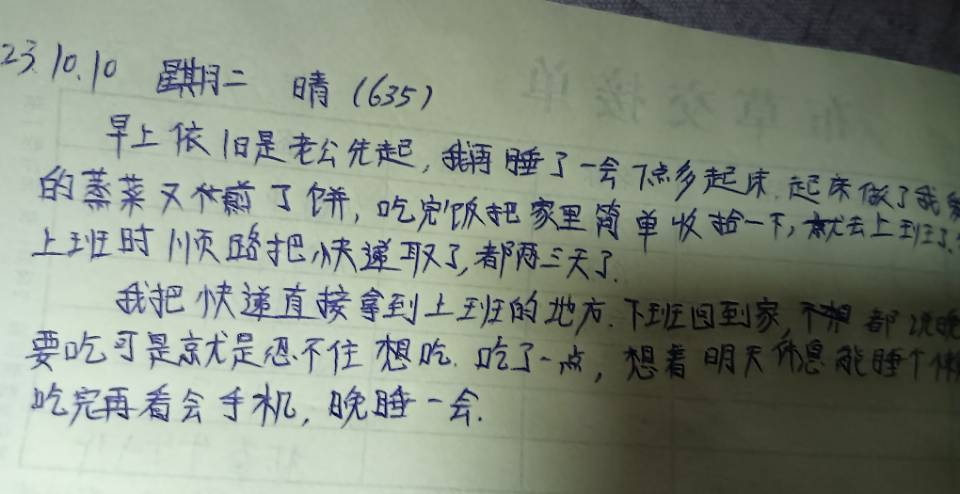 23.10.10 星期二 晴(635)
早上依旧是老公先起,我再睡了一会7点多起床.起床做了我
的蒸菜又煎了饼,吃完饭把家里简单收拾一下,就去上班了.
上班时顺路把快递取了,都两三天了.
我把快递直接拿到上班的地方.下班回到家,不想都说晚
要吃可是就是忍不住想吃.吃了一点,想着明天休息能睡个
吃完再看会手机,晚睡一会.
有草交接单